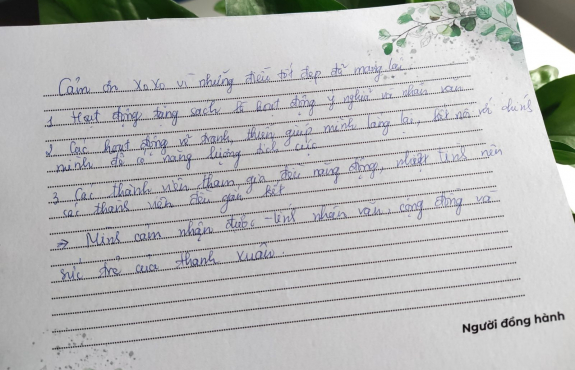 Cảm ơn XoXo vì những điều tốt đẹp đã mang lại
1 Hoạt động tặng sách là hoạt động ý nghĩa và nhân văn
2 Các hoạt động vẽ tranh, thiền giúp mình lắng lại, kết nối với chính
mình để có năng lượng tích cực
3 Các thành viên tham gia đều năng động, nhiệt tình nên
các thành viên đều gắn kết
→ Mình cảm nhận được tính nhân văn, cộng đồng và
sức trẻ của thanh xuân.
Người đồng hành